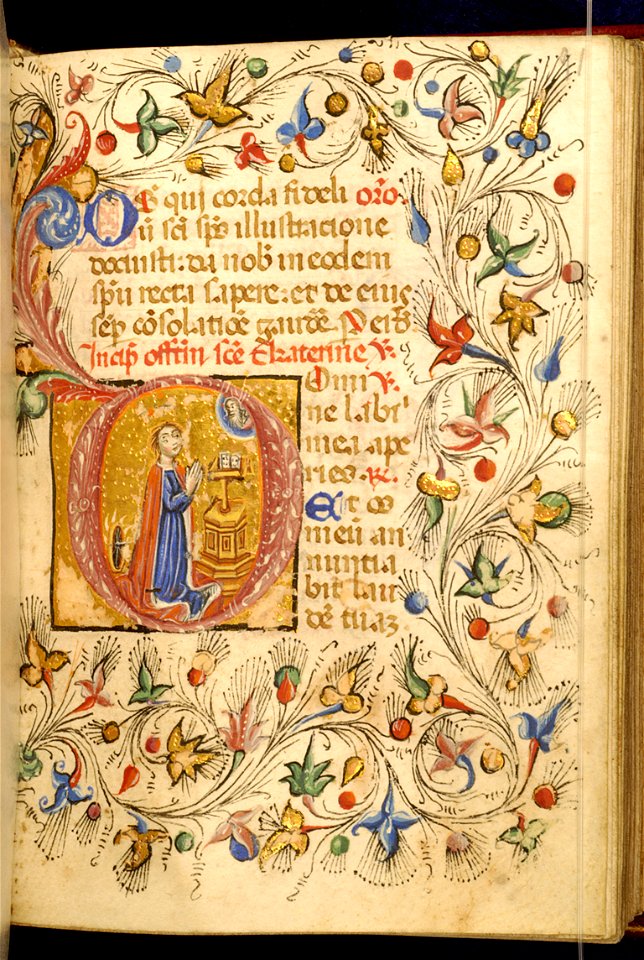 DS̄ qui corda fideli or̄o
ū sc̄i sp̄s illustracione
docuisti: da nob̄ in eodem
sp̄u recta sapere: et de eius
sep̄ cōsolatiōe gaudē. P
Incip̄ offm̄ sc̄e Ekaterine V̄.
Domi V̄.
ne labi'
mea ape
ries. R̄.
Et os
meū an
nuntia
bit lau
dē tuaꝫ